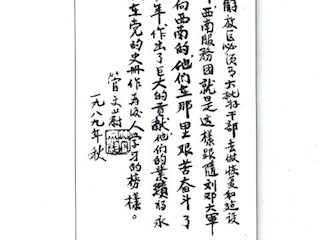 解放区必须有大批好干部去做恢复和建设
西南服务团就是这样跟随刘邓大军
向西南的他们在那里艰苦奋斗了
年作出了巨大的贡献他们的业绩将永
在党的史册作为后人学习的榜样。
管文蔚
一九八九年秋